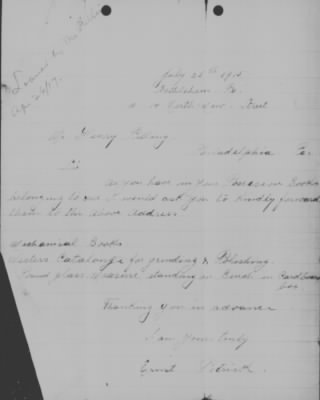 Apr 26/17.
July 26th 1915
Bethlehem Pa.
North New Street
Mr Henry
Philadelphia Pa.
As you have in your Possession Books
belonging to me I would ask you to kindly forward
them to the above address.
Mechanical Books
Catalogue for grinding & Polishing.
glass measure standing on Bench in Cardboard
box
Thanking you in advance
I am yours truly
Ernst